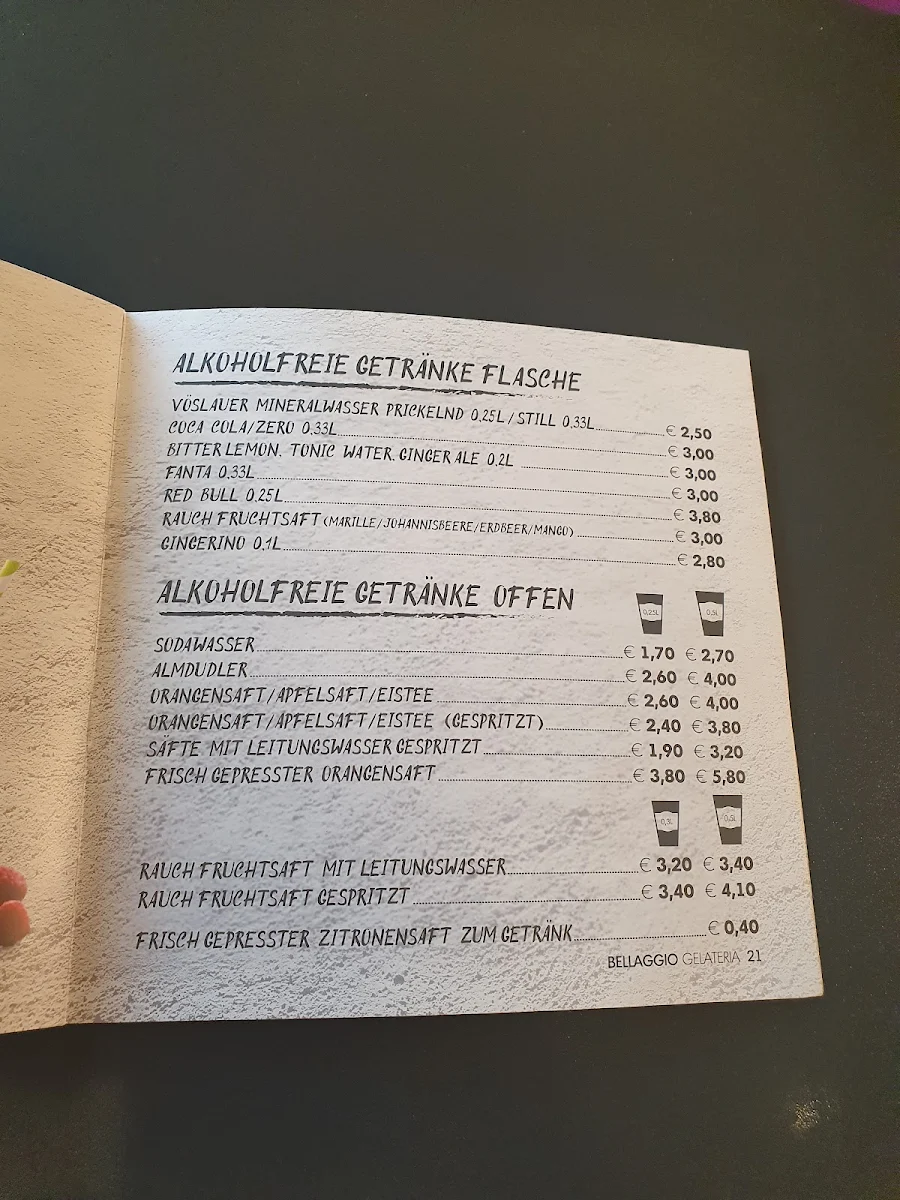 ALKOHOLFREIE GETRÄNKE FLASCHE
VÖSLAUER MINERALWASSER PRICKELND 0,25L / STILL 0,33L € 2,50
COCA COLA/ZERO 0,33L € 3,00
BITTER LEMON, TONIC WATER, GINGER ALE 0,2L € 3,00
FANTA 0,33L € 3,00
RED BULL 0,25L € 3,80
RAUCH FRUCHTSAFT (MARILLE/JOHANNISBEERE/ERDBEER/MANGO) € 3,00
GINGERINO 0,1L € 2,80
ALKOHOLFREIE GETRÄNKE OFFEN 0,25L 0,5L
SODAWASSER € 1,70 € 2,70
ALMDUDLER € 2,60 € 4,00
ORANGENSAFT/APFELSAFT/EISTEE € 2,60 € 4,00
ORANGENSAFT/APFELSAFT/EISTEE (GESPRITZT) € 2,40 € 3,80
SÄFTE MIT LEITUNGSWASSER GESPRITZT € 1,90 € 3,20
FRISCH GEPRESSTER ORANGENSAFT € 3,80 € 5,80
0,3L 0,5L
RAUCH FRUCHTSAFT MIT LEITUNGSWASSER € 3,20 € 3,40
RAUCH FRUCHTSAFT GESPRITZT € 3,40 € 4,10
FRISCH GEPRESSTER ZITRONENSAFT ZUM GETRÄNK € 0,40
BELLAGGIO GELATERIA 21